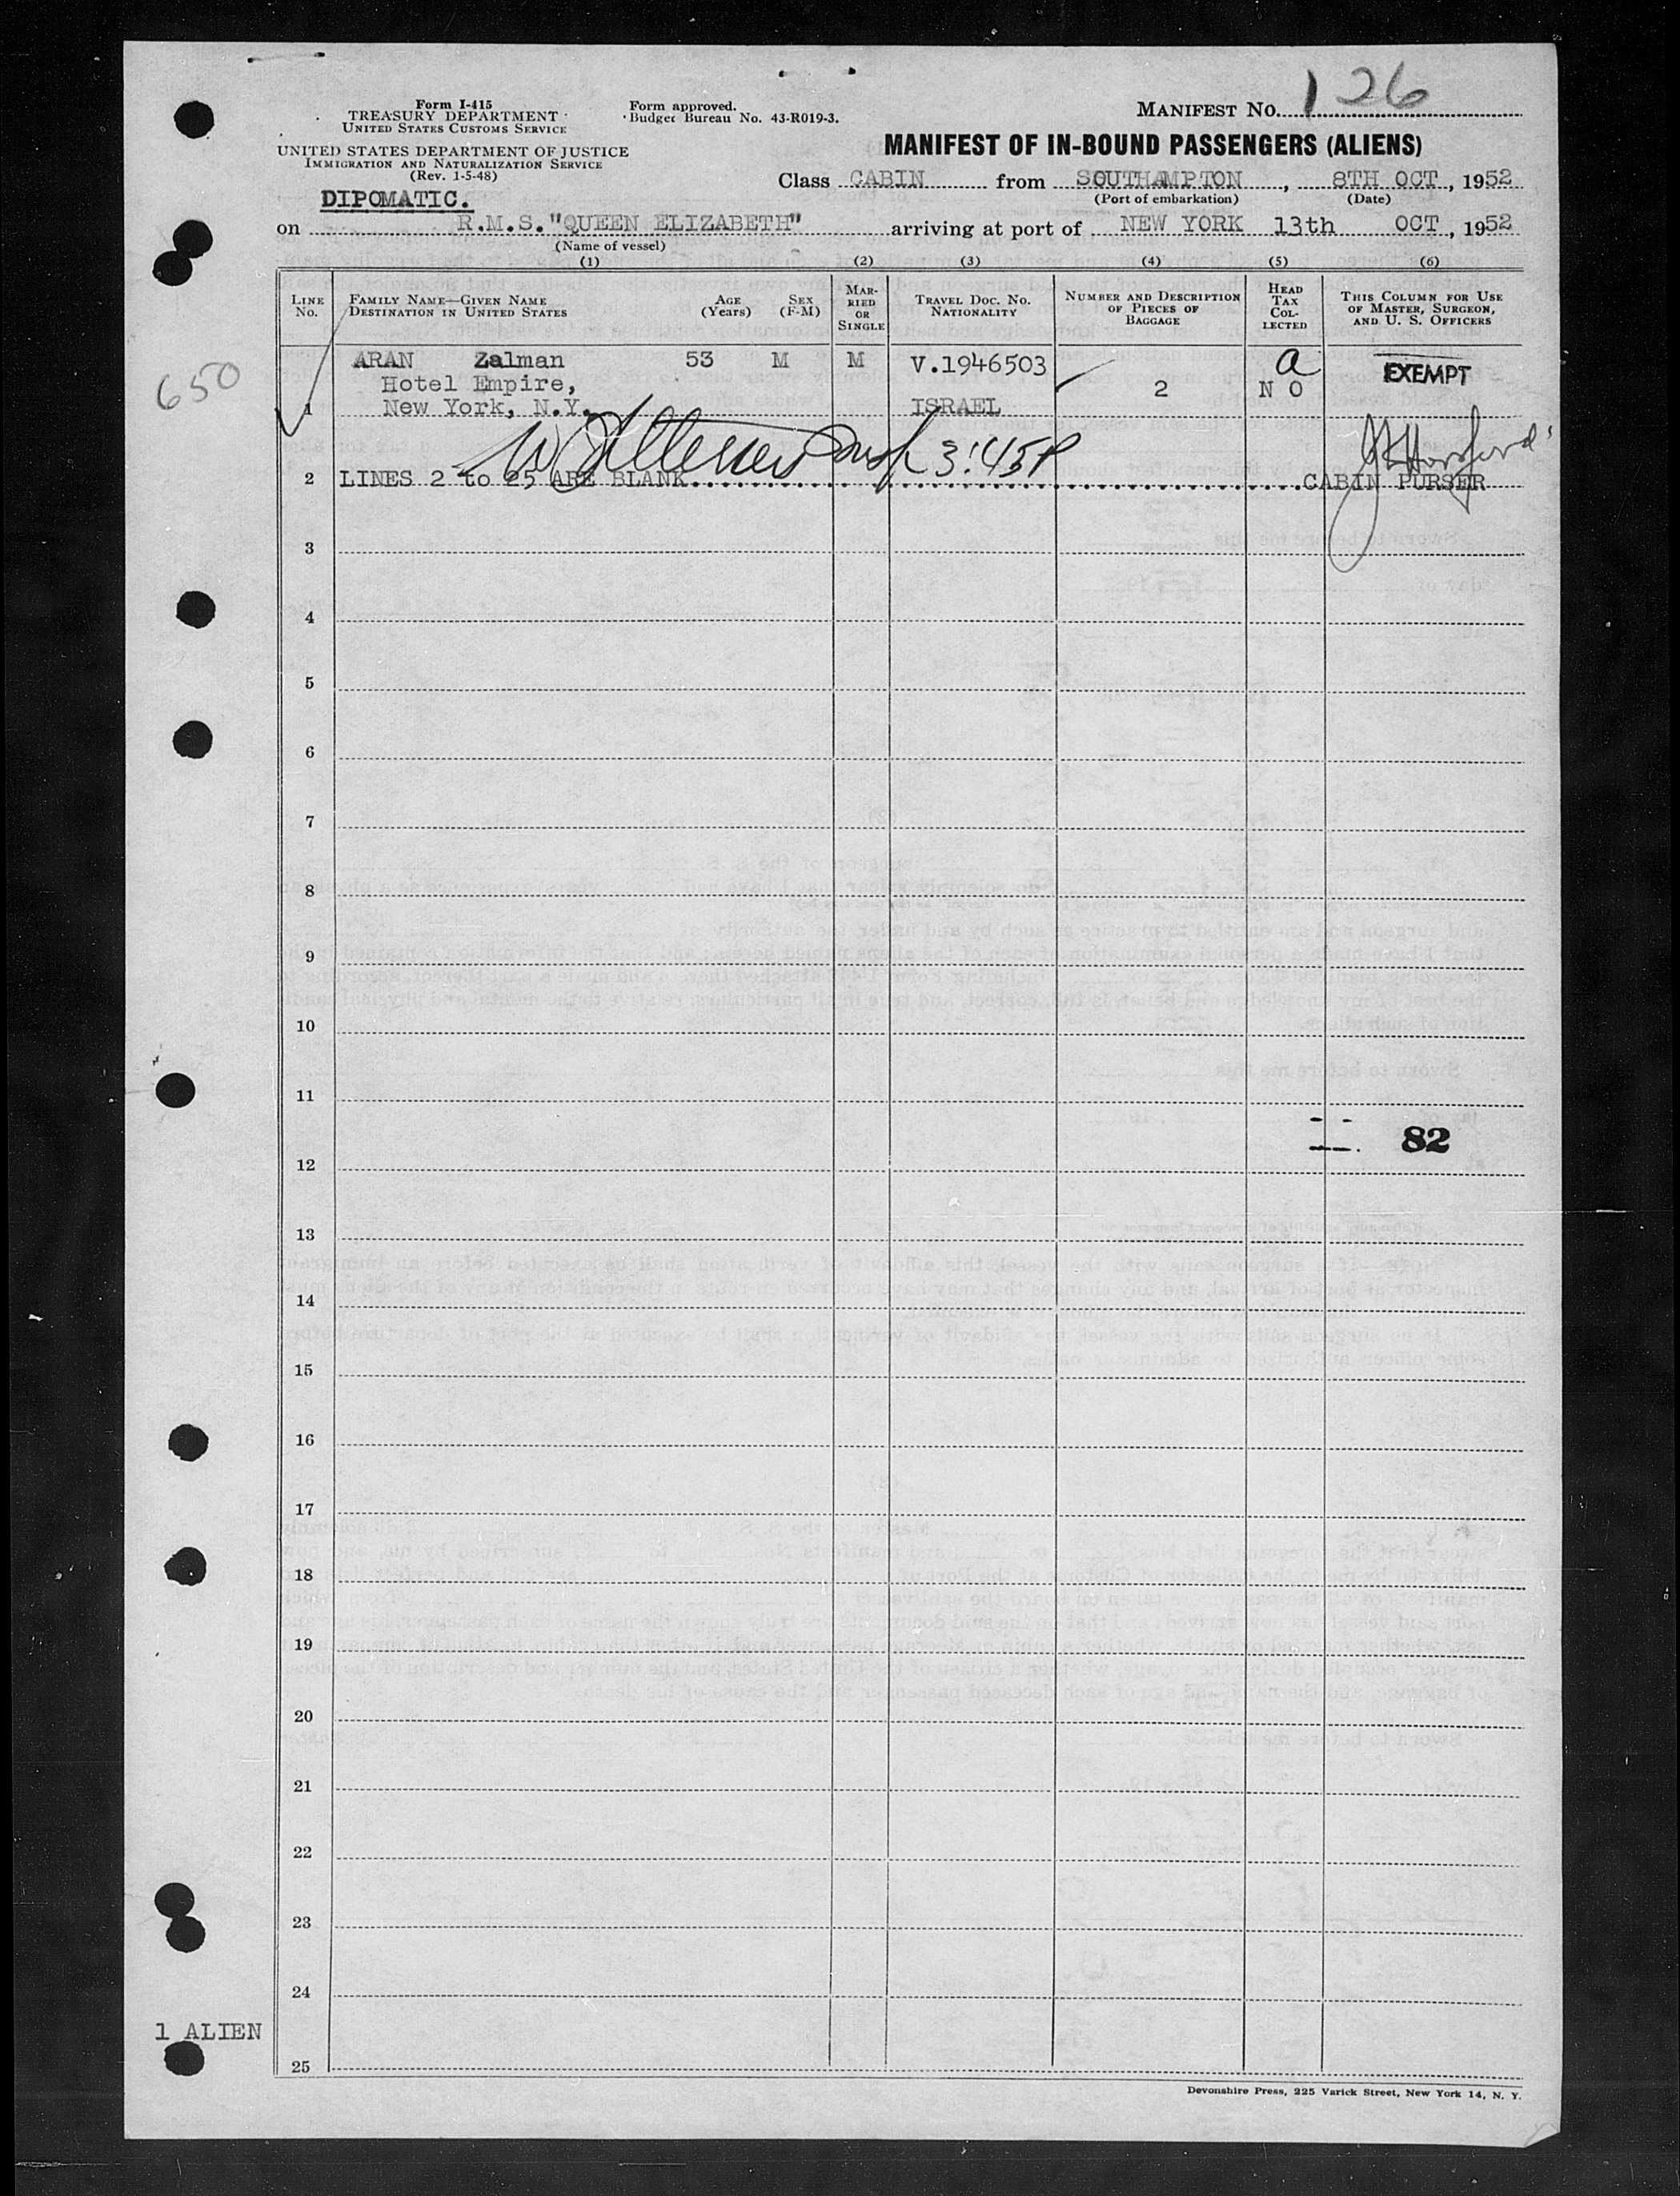 Form I-415
TREASURY DEPARTMENT
UNITED STATES CUSTOMS SERVICE
UNITED STATES DEPARTMENT OF JUSTICE
IMMIGRATION AND NATURALIZATION SERVICE
(Rev. 1-5-48)
Form approved.
Budget Bureau No. 43-R019-3.
MANIFEST NO. 126
MANIFEST OF IN-BOUND PASSENGERS (ALIENS)
Class CABIN from SOUTHAMPTON, 8TH OCT, 1952
(Port of embarkation) (Date)
DIPOMATIC.
on R.M.S."QUEEN ELIZABETH" arriving at port of NEW YORK 13th OCT, 1952
(Name of vessel)
(1) (2) (3) (4) (5) (6)
LINE NO.
FAMILY NAME—GIVEN NAME
DESTINATION IN UNITED STATES
AGE (Years)
SEX (F-M)
MARRIED OR SINGLE
TRAVEL DOC. NO.
NATIONALITY
NUMBER AND DESCRIPTION OF PIECES OF BAGGAGE
HEAD TAX COLLECTED
THIS COLUMN FOR USE OF MASTER, SURGEON, AND U. S. OFFICERS
650
1 ARAN Zalman 53 M M V.1946503 a EXEMPT
Hotel Empire, 2 N O
New York, N.Y. ISRAEL
3:45P
2 LINES 2 to 25 ARE BLANK CABIN PURSER
3
4
5
6
7
8
9
10
11
82
12
13
14
15
16
17
18
19
20
21
22
23
24
1 ALIEN
25
Devonshire Press, 225 Varick Street, New York 14, N. Y.